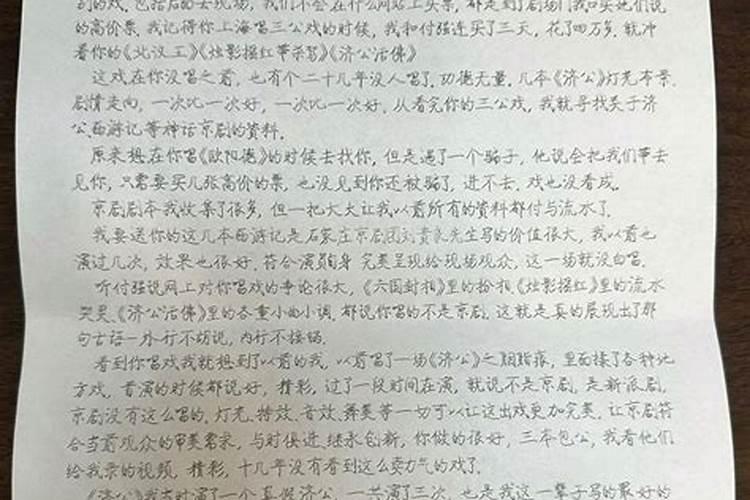 别的戏,包括后面去现场,我们不会在什么网站上买票,都是到了剧场门口买她们说
的高价票.我记得你上海唱三公戏的时候,我和付强连买了三天,花了四万多,就冲
看你的《北汉王》《烛影摇红带杀驾》《济公活佛》
这戏在你没唱之前,也有个二十几年没人唱了.功德无量.几本《济公》灯光布景.
剧情走向,一次比一次好,一次比一次好.从看完你的三公戏,我就寻找关于济
公.西游记等神话京剧的资料.
原来想在你唱《欧阳德》的时候去找你,但是遇了一个骗子,他说会把我们带去
见你,只需要买几张高价的票,也没见到你还被骗了,进不去,戏也没看成.
京剧剧本我收集了很多,但一把大火让我以前所有的资料都付与流水了.
我要送你的这几本西游记是石家庄京剧团刘贵先生写的价值很大,我以前也
演过几次,效果也很好.符合演员自身 完美呈现给现场观众,这一场就没白唱.
听付强说网上对你唱戏的争论很大,《六国封相》里的扮相《烛影摇红》里的流水
哭灵.《济公活佛》里的各重小曲小调.都说你唱的不是京剧.这就是真的展现出了那
句古语-外行不胡说,内行不接锅.
看到你唱戏我就想到了以前的我,以前唱了一场《济公》之胭脂痕,里面揉了各种地
方戏,首演的时候都说好,精彩,过了一段时间在演,就说不是京剧,是新派剧,
京剧没有这么唱的.灯光.特效.音效.舞美等一切可以让这出戏更加完美.让京剧符
合当前观众的审美需求,与时俱进.继承创新,你做的很好,三本包公,我看他们
给我录的视频,精彩,十几年没有看到这么卖力气的戏了.
《济公》我当时演了一个真假济公,一共演了三次,也是我这一辈子写的最好的